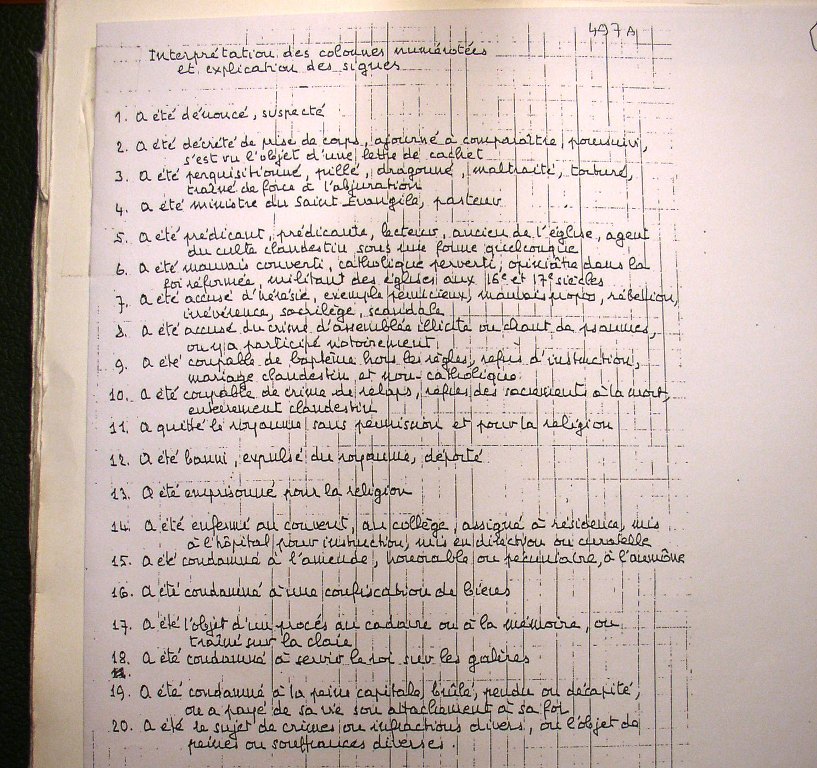 497A
Interprétation des colonnes numérotées
et explication des signes
1. A été dénoncé, suspecté
2. A été décrété de prise de corps, ajourné à comparaître, poursuivi,
s'est vu l'objet d'une lettre de cachet
3. A été perquisitionné, pillé, dragonné, maltraité, torturé,
traîné de force à l'abjuration
4. A été ministre du Saint Evangile, pasteur
5. A été prédicant, prédicante, lecteur, ancien de l'église, agent
du culte clandestin sous une forme quelconque
6. A été mauvais converti, catholique perverti, opiniâtre dans la
foi réformée, militant des églises aux 16e et 17e siècles
7. A été accusé d'hérésie, exemple pernicieux, mauvais propos, rébellion,
irrévérence, sacrilège, scandale
8. A été accusé du crime d'assemblée illicite ou chant de psaumes,
ou y a participé notoirement
9. A été coupable de baptême hors les règles, refus d'instruction,
mariage clandestin et non-catholique
10. A été coupable de crime de relaps, refus des sacrements à la mort,
enterrement clandestin
11. A quitté le royaume sans permission et pour la religion
12. A été banni, expulsé du royaume, déporté
13. A été emprisonné pour la religion
14. A été enfermé au couvent, au collège, assigné à résidence, mis
à l'hôpital pour instruction, mis en direction ou curatelle
15. A été condamné à l'amende, honorable ou pécuniaire, à l'aumône
16. A été condamné à une confiscation de biens
17. A été l'objet d'un procés au cadavre ou à la mémoire, ou
traîné sur la claie
18. A été condamné à servir le roi sur les galères
19. A été condamné à la peine capitale, brûlé, pendu ou décapité,
ou a payé de sa vie son attachement à sa foi
20. A été le sujet de crimes ou infractions divers, ou l'objet de
peines ou souffrances diverses.